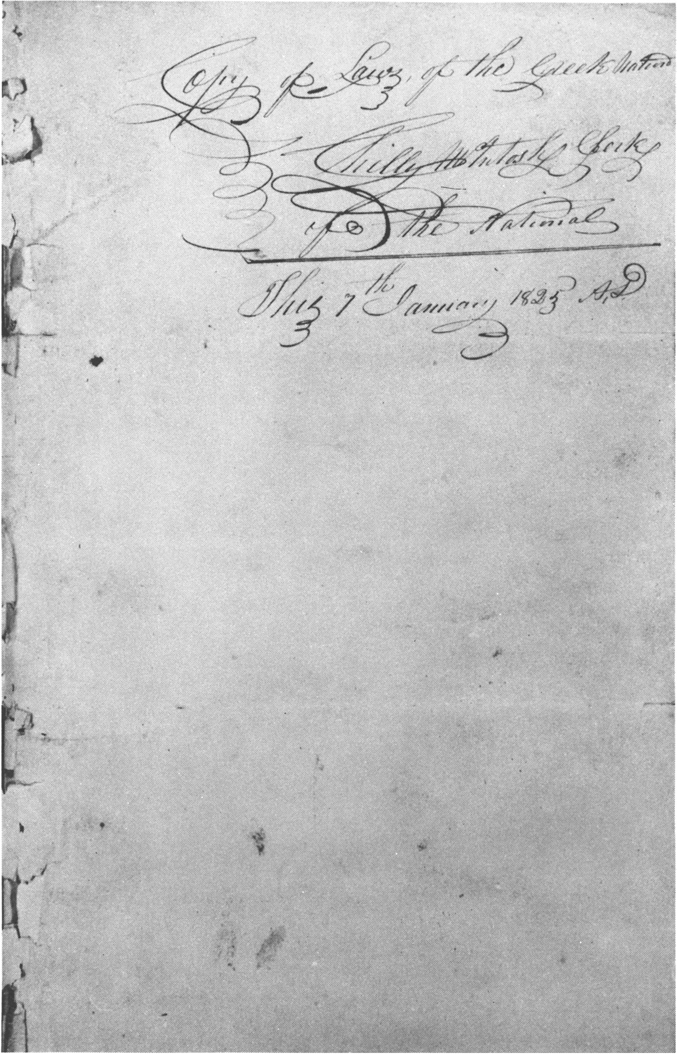 Copy of Laws, of the Creek Nation
Chilly McIntosh Clerk
of the National
This 7th January 1825 A,D